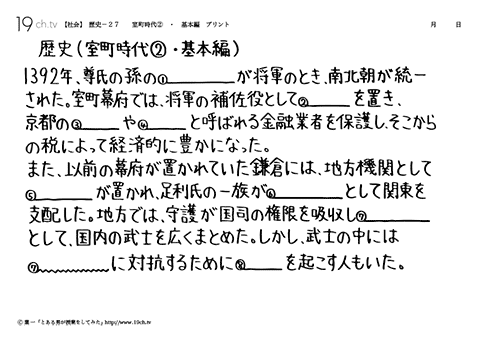 19ch.tv 【社会】 歴史－２７ 室町時代② ・ 基本編 プリント 月 日
歴史(室町時代②・基本編)
1392年、尊氏の孫の①________が将軍のとき、南北朝が統一
された。室町幕府では、将軍の補佐役として②________を置き、
京都の③________や④________と呼ばれる金融業者を保護し、そこから
の税によって経済的に豊かになった。
また、以前の幕府が置かれていた鎌倉には、地方機関として
⑤________が置かれ、足利氏の一族が⑥________として関東を
支配した。地方では、守護が国司の権限を吸収し⑦________
として、国内の武士を広くまとめた。しかし、武士の中には
⑦________に対抗するために⑧________を起こす人もいた。
©葉一「とある男が授業をしてみた」http://www.19ch.tv